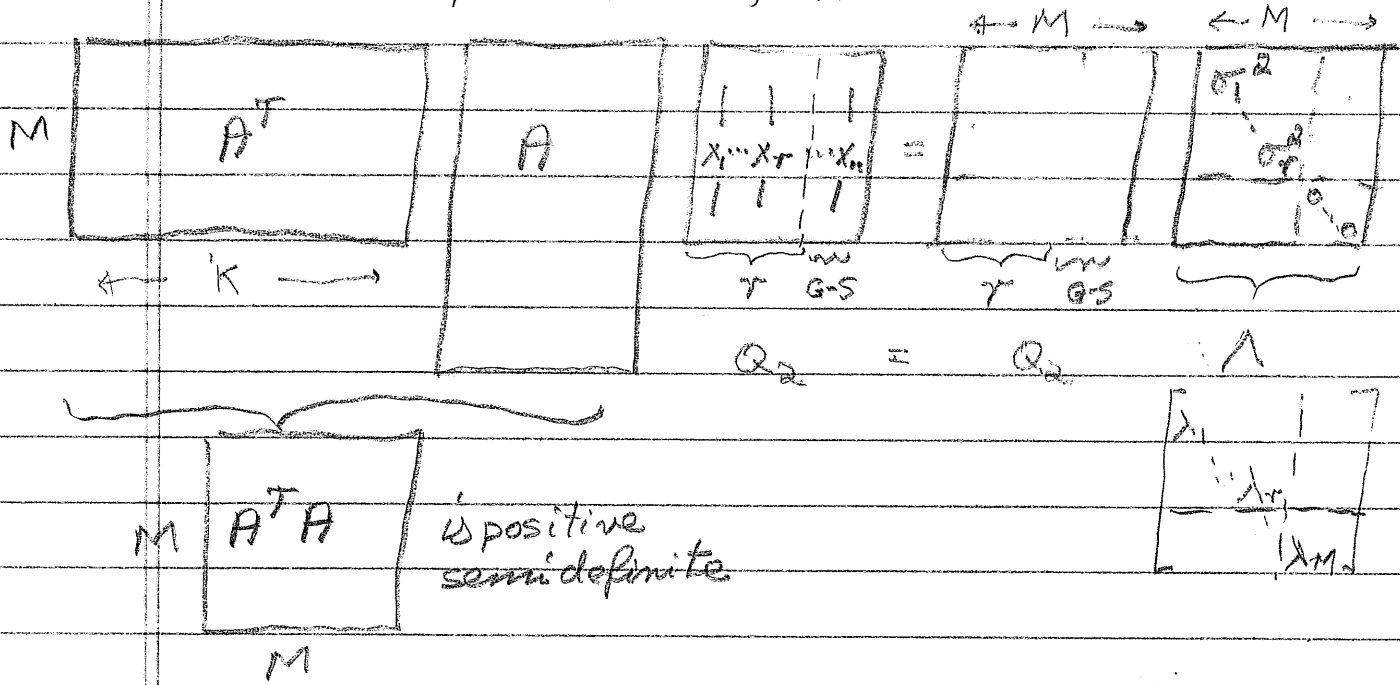 ← M → ← M →
M Aᵀ A x₁ ... xᵣ ... xₘ = σ₁² σᵣ² 0 0
← K → r G-S r G-S
Q₂ = Q₂ Λ
λ₁
λᵣ
λM
M AᵀA is positive
semidefinite
M